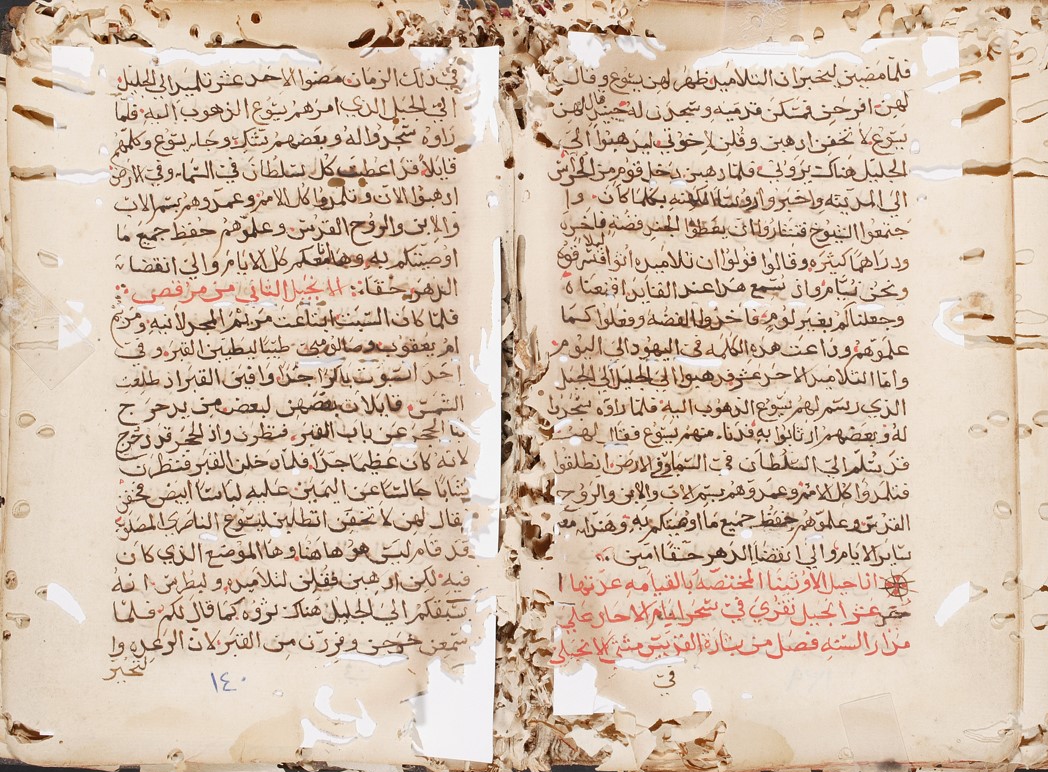 فلما مضين ليخبران التلاميذ ظهر لهن يسوع وقال
لهن افرحن فمسكن قدميه وسجدن له حينيذ قال لهن
يسوع لا تخفن اذهبن وقلن لاخوتي ليذهبوا الى
الجليل هناك يروني فلما ذهبن دخل قوم من الحراس
الى المدينه واخبروا روسا الكهنه بكلما كان وا
جتمعوا الشيوخ فتشاوروا ان يعطوا الجند فضه فاخره
ودراهما كثيره وقالوا قولوا ان تلاميذه اتوا ليلا سرقوه
ونحن نيام وان سمع هذا عند القايد اقنعناه
وجعلناكم بغير لوم فاخذوا الفضه وفعلوا كما
علموهم وذاعت هذه الكلمه في اليهود الى اليوم
واما التلاميذ الاحد عشر فذهبوا الى الجليل الى الجبل
الذي رسم لهم يسوع الذهوب اليه فلما راوه سجدوا
له وبعضهم ارتابوا به فدنا منهم يسوع فقال لهم
قد سلم الي السلطان في السما وفي الارض انطلقوا
فتلمذوا كل الامم وعمدوهم بسم الاب والابن والروح
القدس وعلموهم حفظ جميع ما اوصيتكم به وهنذا معكم
ساير الايام والى انقضا الدهر حقا امين
اناجيل الاوثينا المختصه بالقيامه عدتها ا
حد عشر انجيل تقري في سحر ايام الاحاد على
مدار السنه فصل من بشارة القديس متى الانجيلي
في
في ذلك الزمان مضوا الاحد عشر تلميذ الى الجليل
الى الجبل الذي امرهم يسوع الذهوب اليه فلما
راوه سجدوا له وبعضهم تشكك وجا يسوع وكلمهم
قايلا قد اعطيت كل سلطان في السما وفي الارض
اذهبوا الان وتلمذوا كل الامم وعمدوهم بسم الاب
والابن والروح القدس وعلموهم حفظ جميع ما
اوصيتكم به وها انا معكم كل الايام والى انقضا
الدهر حقا الانجيل الثاني من مرقص
فلما كان السبت ابتاعت مريم المجدلانيه ومريم
ام يعقوب وصالومي طيبا ليطيبن القبر وفي
احد السبوت باكرا جدا وافين القبر اذ طلعت
الشمس قايلات بعضهن لبعض من يدحرج
لنا الحجر عن باب القبر فنظرن واذ الحجر قد دحرج
لانه كان عظيما جدا فلما دخلن القبر فنظرن
شابا جالسا عن اليمين عليه لباسا ابيض فخفن
فقال لهن لا تخفن اتطلبن ليسوع الناصري المصلوب
قد قام ليس هو هاهنا وها الموضع الذي كان
فيه لكن اذهبن فقلن لتلاميذه ولبطرس انه
يسبقكم الى الجليل هناك تروه كما قال لكم فلما
سمعن خرجن وفررن من القبر لان الرعده وا
لتحير
١٤٠